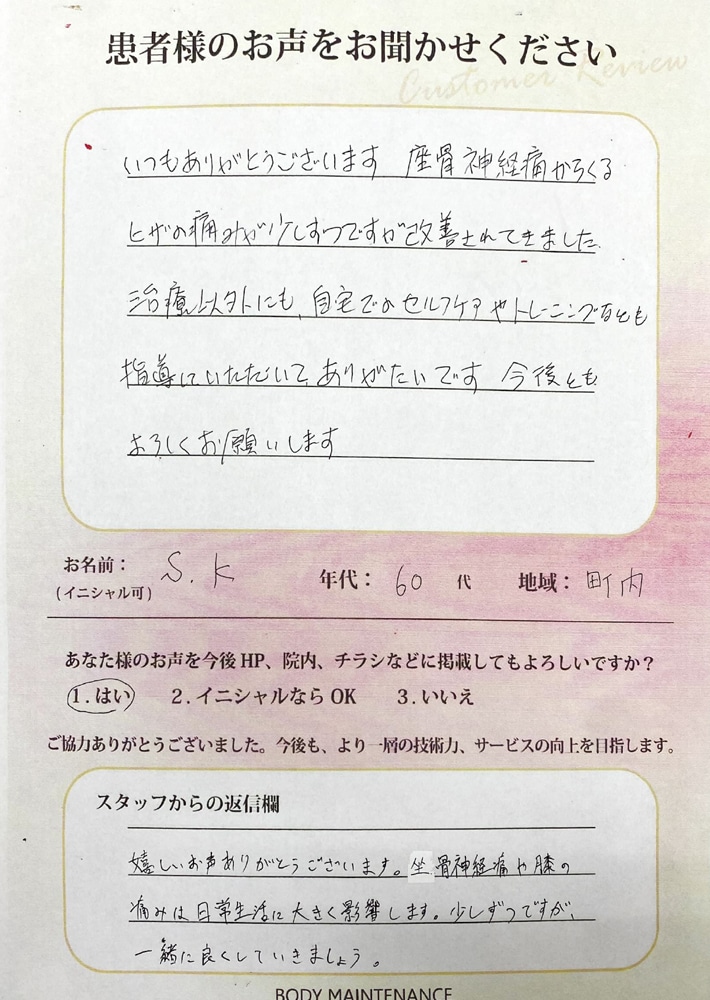 患者様のお声をお聞かせください
Customer Review
いつもありがとうございます 座骨神経痛からくる
ヒザの痛みが少しずつですが改善されてきました
治療以外にも、自宅でのセルフケアやトレーニングなども
指導していただいて、ありがたいです 今後とも
よろしくお願いします
お名前： S. K 年代： 60 代 地域： 町内
(イニシャル可)
あなた様のお声を今後 HP、院内、チラシなどに掲載してもよろしいですか？
1. はい 2. イニシャルなら OK 3. いいえ
ご協力ありがとうございました。今後も、より一層の技術力、サービスの向上を目指します。
スタッフからの返信欄
嬉しいお声ありがとうございます。坐骨神経痛や膝の
痛みは日常生活に大きく影響します。少しずつですが、
一緒に良くしていきましょう。
BODY MAINTENANCE